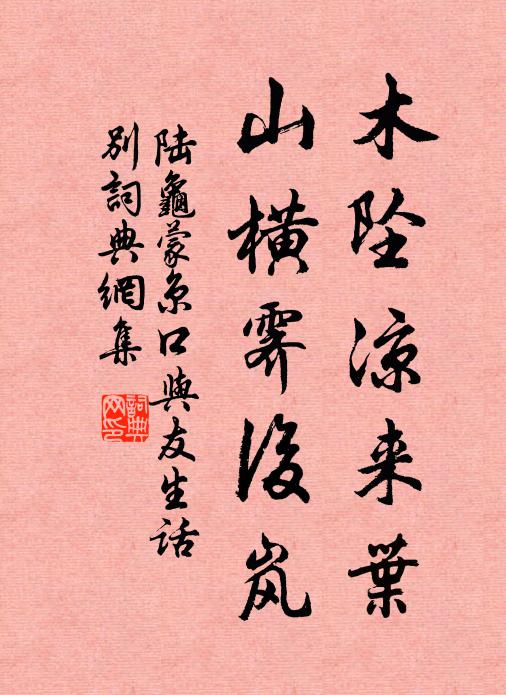 木坠凉来葉
山橫霽後岚
陆龜蒙京口與友生话
别詞典網集
詞典网印